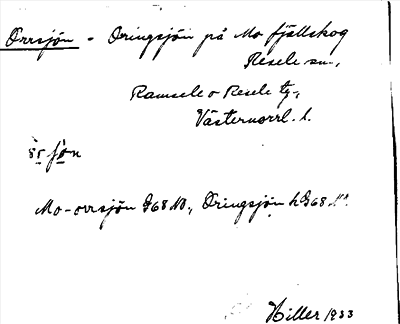 Orrsjön - Öringsjön på Mo fjällskog
Resele sn.,
Ramsele o Resele tg.,
Västernorrl. l.
Mo-orrsjön G68 NB., Öringsjön h G68
Hiller 1933